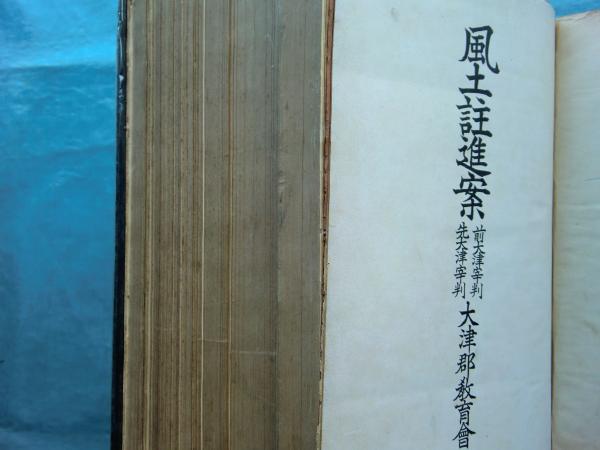 風土註進案
前大津宰判
先大津宰判
大津郡教育會